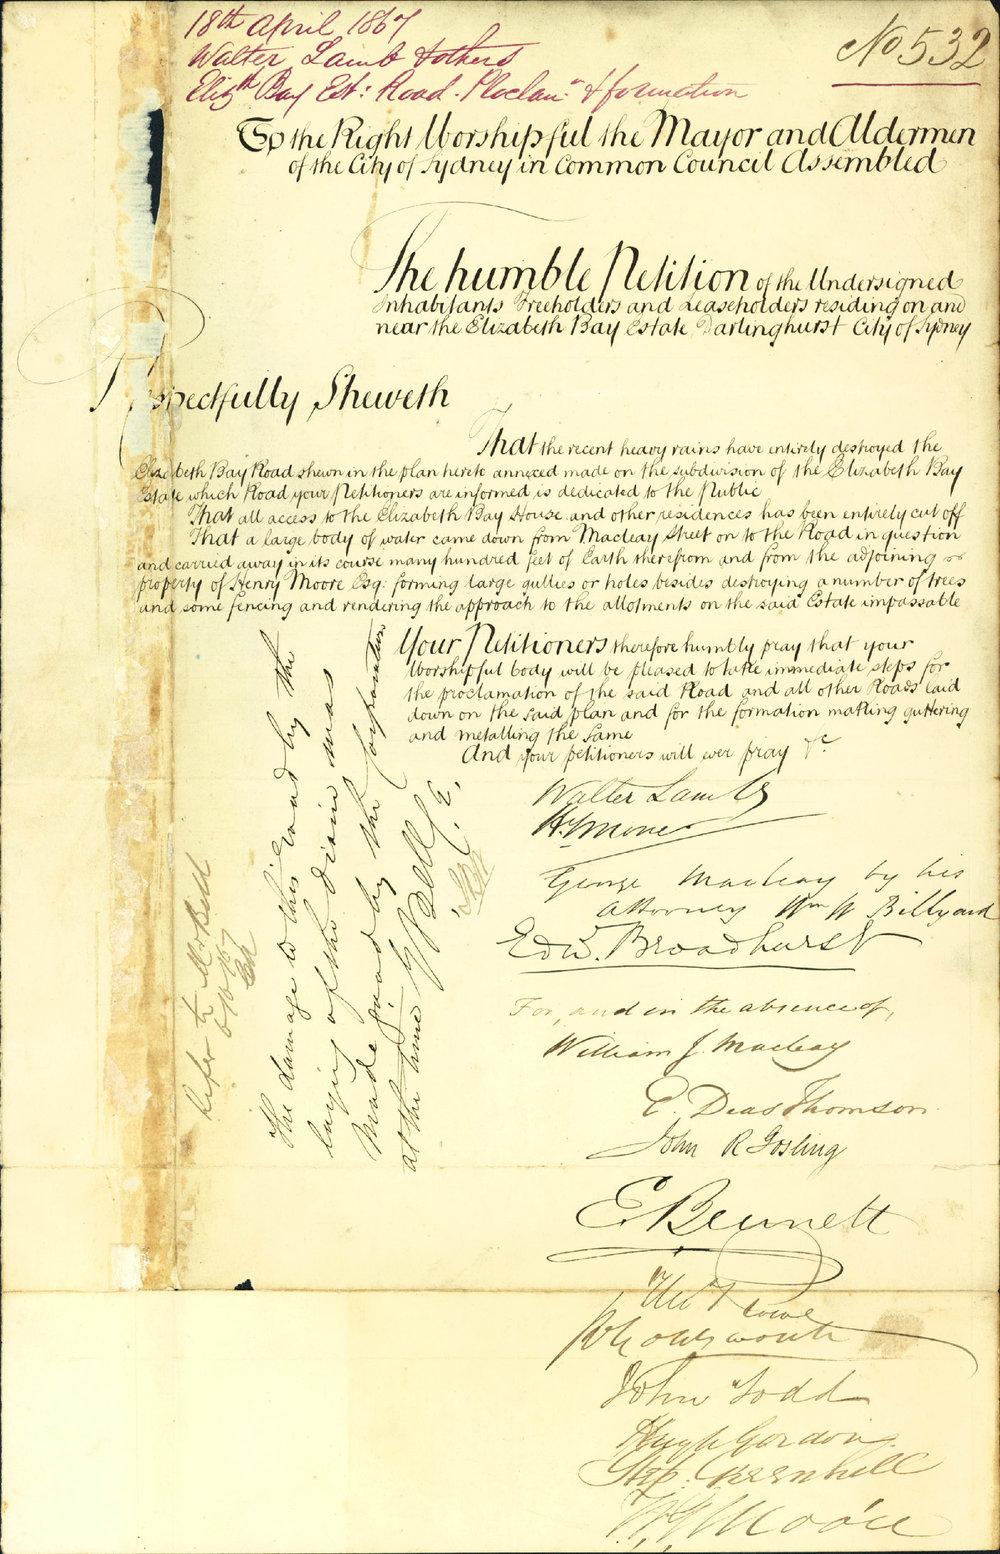 18th April 1867
Walter Lamb & others
Elizth Bay Est: Road - Proclam.n & formation
No 532
To the Right Worshipful the Mayor and Aldermen
of the City of Sydney in Common Council Assembled
The humble Petition of the Undersigned
Inhabitants Freeholders and Leaseholders residing on and
near the Elizabeth Bay Estate Darlinghurst City of Sydney
Respectfully Sheweth
That the recent heavy rains have entirely destroyed the
Elizabeth Bay Road shewn in the plan hereto annexed made on the subdivision of the Elizabeth Bay
Estate which Road your Petitioners are informed is dedicated to the Public
That all access to the Elizabeth Bay House and other residences has been entirely cut off
That a large body of water came down from Macleay Street on to the Road in question
and carried away in its course many hundred feet of Earth therefrom and from the adjoining
property of Henry Moore Esq: forming large gullies or holes besides destroying a number of trees
and some fencing and rendering the approach to the allotments on the said Estate impassable
Your Petitioners therefore humbly pray that your
Worshipful body will be pleased to take immediate steps for
the proclamation of the said Road and all other Roads laid
down on the said plan and for the formation making guttering
and metalling the same
And your petitioners will ever pray &c
Walter Lamb
Hy Moore
George Macleay by his
Attorney Wm W Billyard
Edwd. Broadhurst
For, and in the absence of,
William J. Macleay
E. Deas Thomson
John R Gosling
E. Bennett
Thos Rowe
Holdsworth
John Todd
Hugh Gordon
Step. Greenhill
Moore
Refer to Mr Bell
The damage to this road by the
laying of the drain was
made good by the Corporation
at the time
Bell C.E.